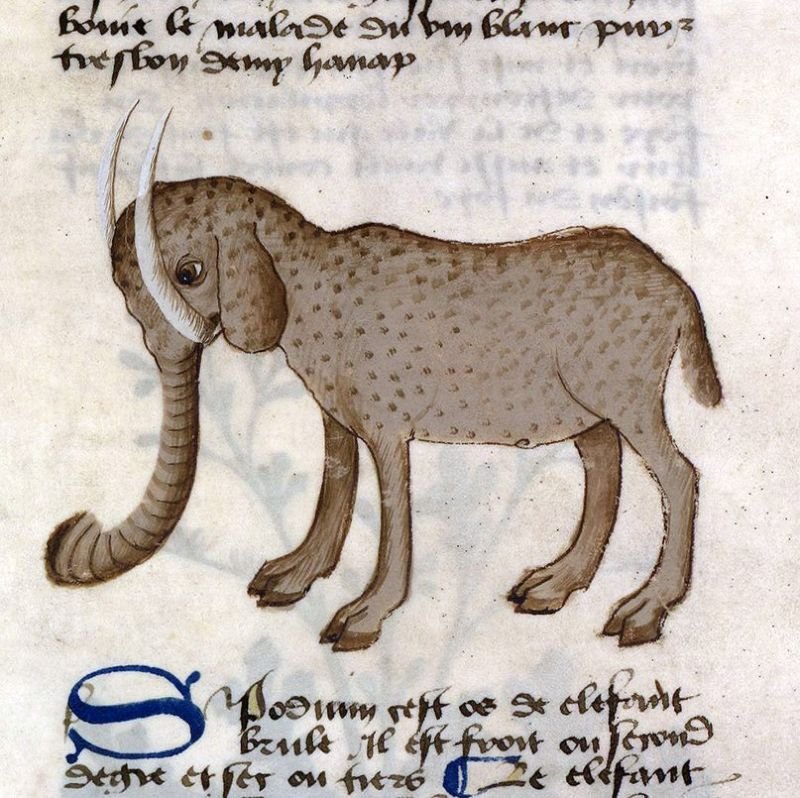 boire le malade du vin blanc pur
tresbon demy hanap
Spodium cest os de elefant
brule Il est froit ou second
degre et sec ou tiers Le elefant